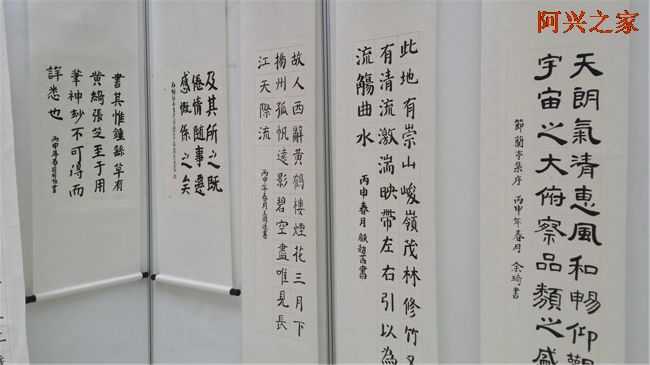 阿兴之家
天朗氣清惠風和暢仰觀
宇宙之大俯察品類之盛
節蘭亭集序 丙申年春月 余琦書
此地有崇山峻嶺茂林修竹又
有清流激湍映帶左右引以為
流觴曲水
丙申春月
故人西辭黃鶴樓煙花三月下
揚州孤帆遠影碧空盡唯見長
江天際流
丙申年春月
及其所之既
倦情隨事遷
感慨係之矣
書其惟鍾繇草有
黃綺張芝至于用
筆神妙不可得而
詳悉也
丙申年春